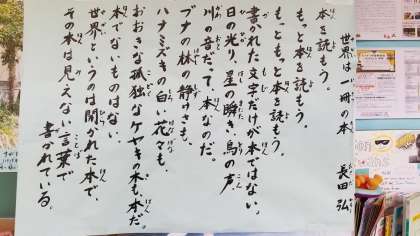 世界は一冊の本　長田弘
本を読もう。
もっと本を読もう。
もっともっと本を読もう。
書かれた文字だけが本ではない。
日の光り、星の瞬き、鳥の声、
川の音だって、本なのだ。
ブナの林の静けさも、
ハナミズキの白い花々も、
おおきな孤独なケヤキの木も、本だ。
本でないものはない。
世界というのは開かれた本で、
その本は見えない言葉で
書かれている。